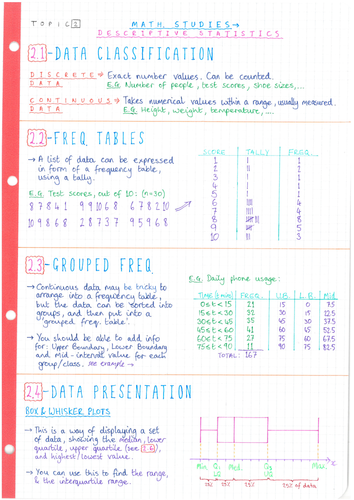 TOPIC 2
MATH STUDIES →
DESCRIPTIVE STATISTICS
2.1 - DATA CLASSIFICATION
DISCRETE DATA → Exact number values. Can be counted.
E.G. Number of people, test scores, shoe sizes,...
CONTINUOUS DATA → Takes numerical values within a range, usually measured.
E.G. Height, weight, temperature,....
2.2 - FREQ. TABLES
→ A list of data can be expressed
in form of a frequency table,
using a tally.
E.G. Test scores, out of 10: (n=30)
8 7 8 4 1 9 9 10 6 8 6 7 8 2 10
10 9 8 6 8 2 8 7 3 7 9 5 9 6 8
SCORE TALLY FREQ.
1
2
3
4
5
6
7
8
9
10
2.3 - GROUPED FREQ.
→ Continuous data may be tricky to
arrange into a frequency table,
but the data can be sorted into
groups, and then put into a
'grouped freq. table'.
→ You should be able to add info
for: Upper Boundary, Lower Boundary
and mid-interval value for each
group/class. see example →
E.G. Daily phone usage:
TIME (t min) FREQ. U.B. L.B. Mid.
0≤t<15 21 15 0 7.5
15≤t<30 32 30 15 22.5
30≤t<45 35 45 30 37.5
45≤t<60 41 60 45 52.5
60≤t<75 27 75 60 67.5
75≤t<90 11 90 75 82.5
TOTAL: 167
2.4 - DATA PRESENTATION
BOX & WHISKER PLOTS
→ This is a way of displaying a set
of data, showing the median, lower
quartile, upper quartile (see 2.6),
and highest/lowest value.
→ You can use this to find the range,
& the interquartile range.
x
Min. Q1 Med. Q3 Max.
25% 25% 25% 25% of data